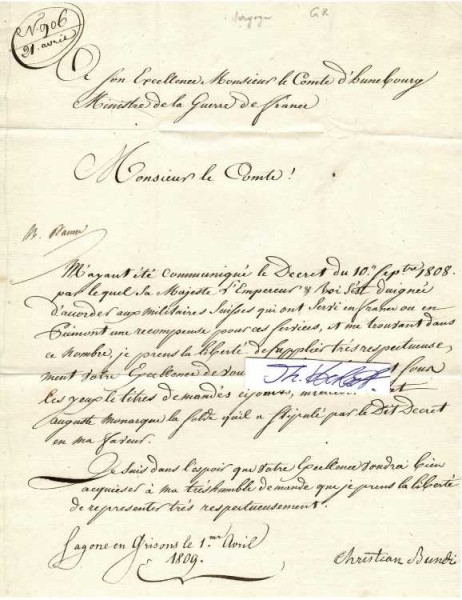 N.906
21. avril
A Son Excellence Monsieur le Comte d'hunebourg
Ministre de la Guerre de france
Monsieur le Comte!
M'ayant été communiqué le Decret du 10.e Sep.tre 1808.
par lequel Sa Majeste l'Empereur & Roi s'est daigné
d'acorder aux militaires Suisses qui ont servi en france ou en
Piémont une recompense pour ces services, et me trouvant dans
ce Nombre, je prens la liberté de supplier très respectueuse,
ment votre Excellence de vou sous
les yeux le titres demandés cijoints,
Auguste monarque la solde qu'il a stipulé par le Dit Decret
en ma faveur.
Je suis dans l'espoir que votre Excellence voudra bien
acquieser à ma trèshumble demande que je prens la liberté
de representer très respectueusement.
Sagone en Grisons le 1.mr Avril
1809.
Christian Bundi